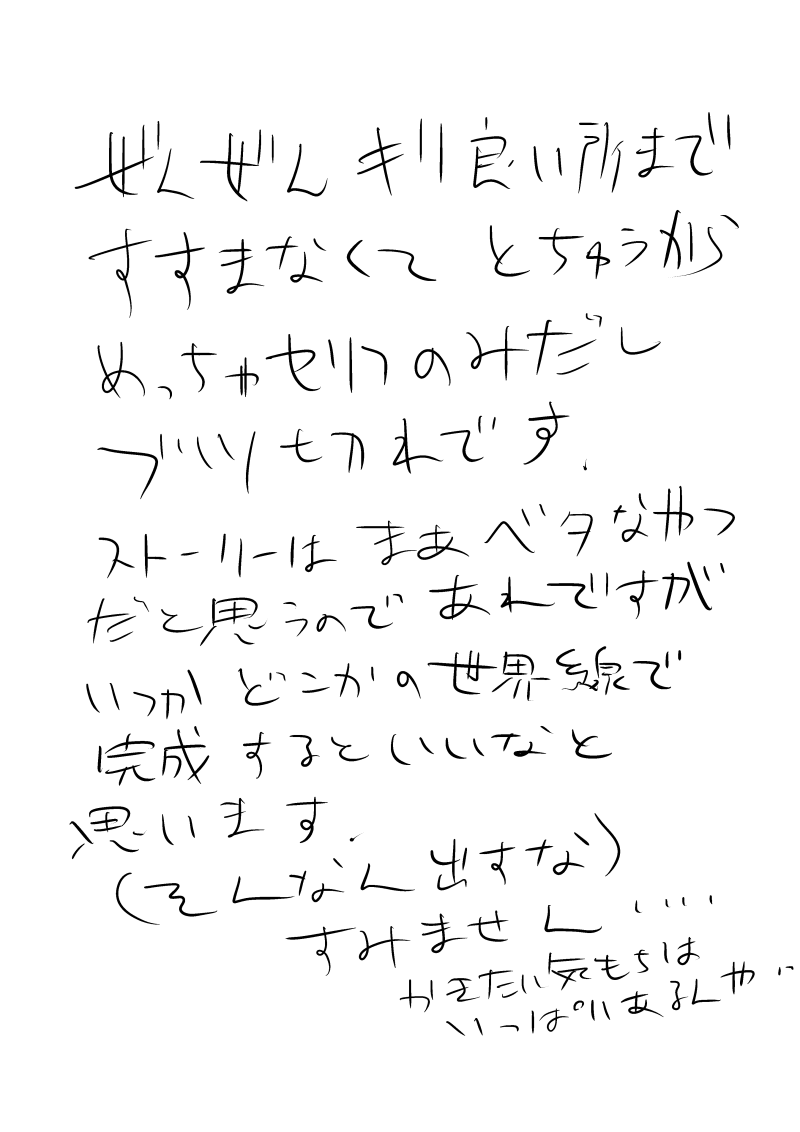 ぜんぜん キリ良い所まで
すすまなくて とちゅうから
めっちゃセリフのみだし
ブツ切れです.
ストーリーは まあ ベタなやつ
だと思うので あれですが
いつか どこかの世界線で
完成するといいなと
思います.
(そんなん出すな)
すみません....
かきたい気もちは
いっぱいあるんや..